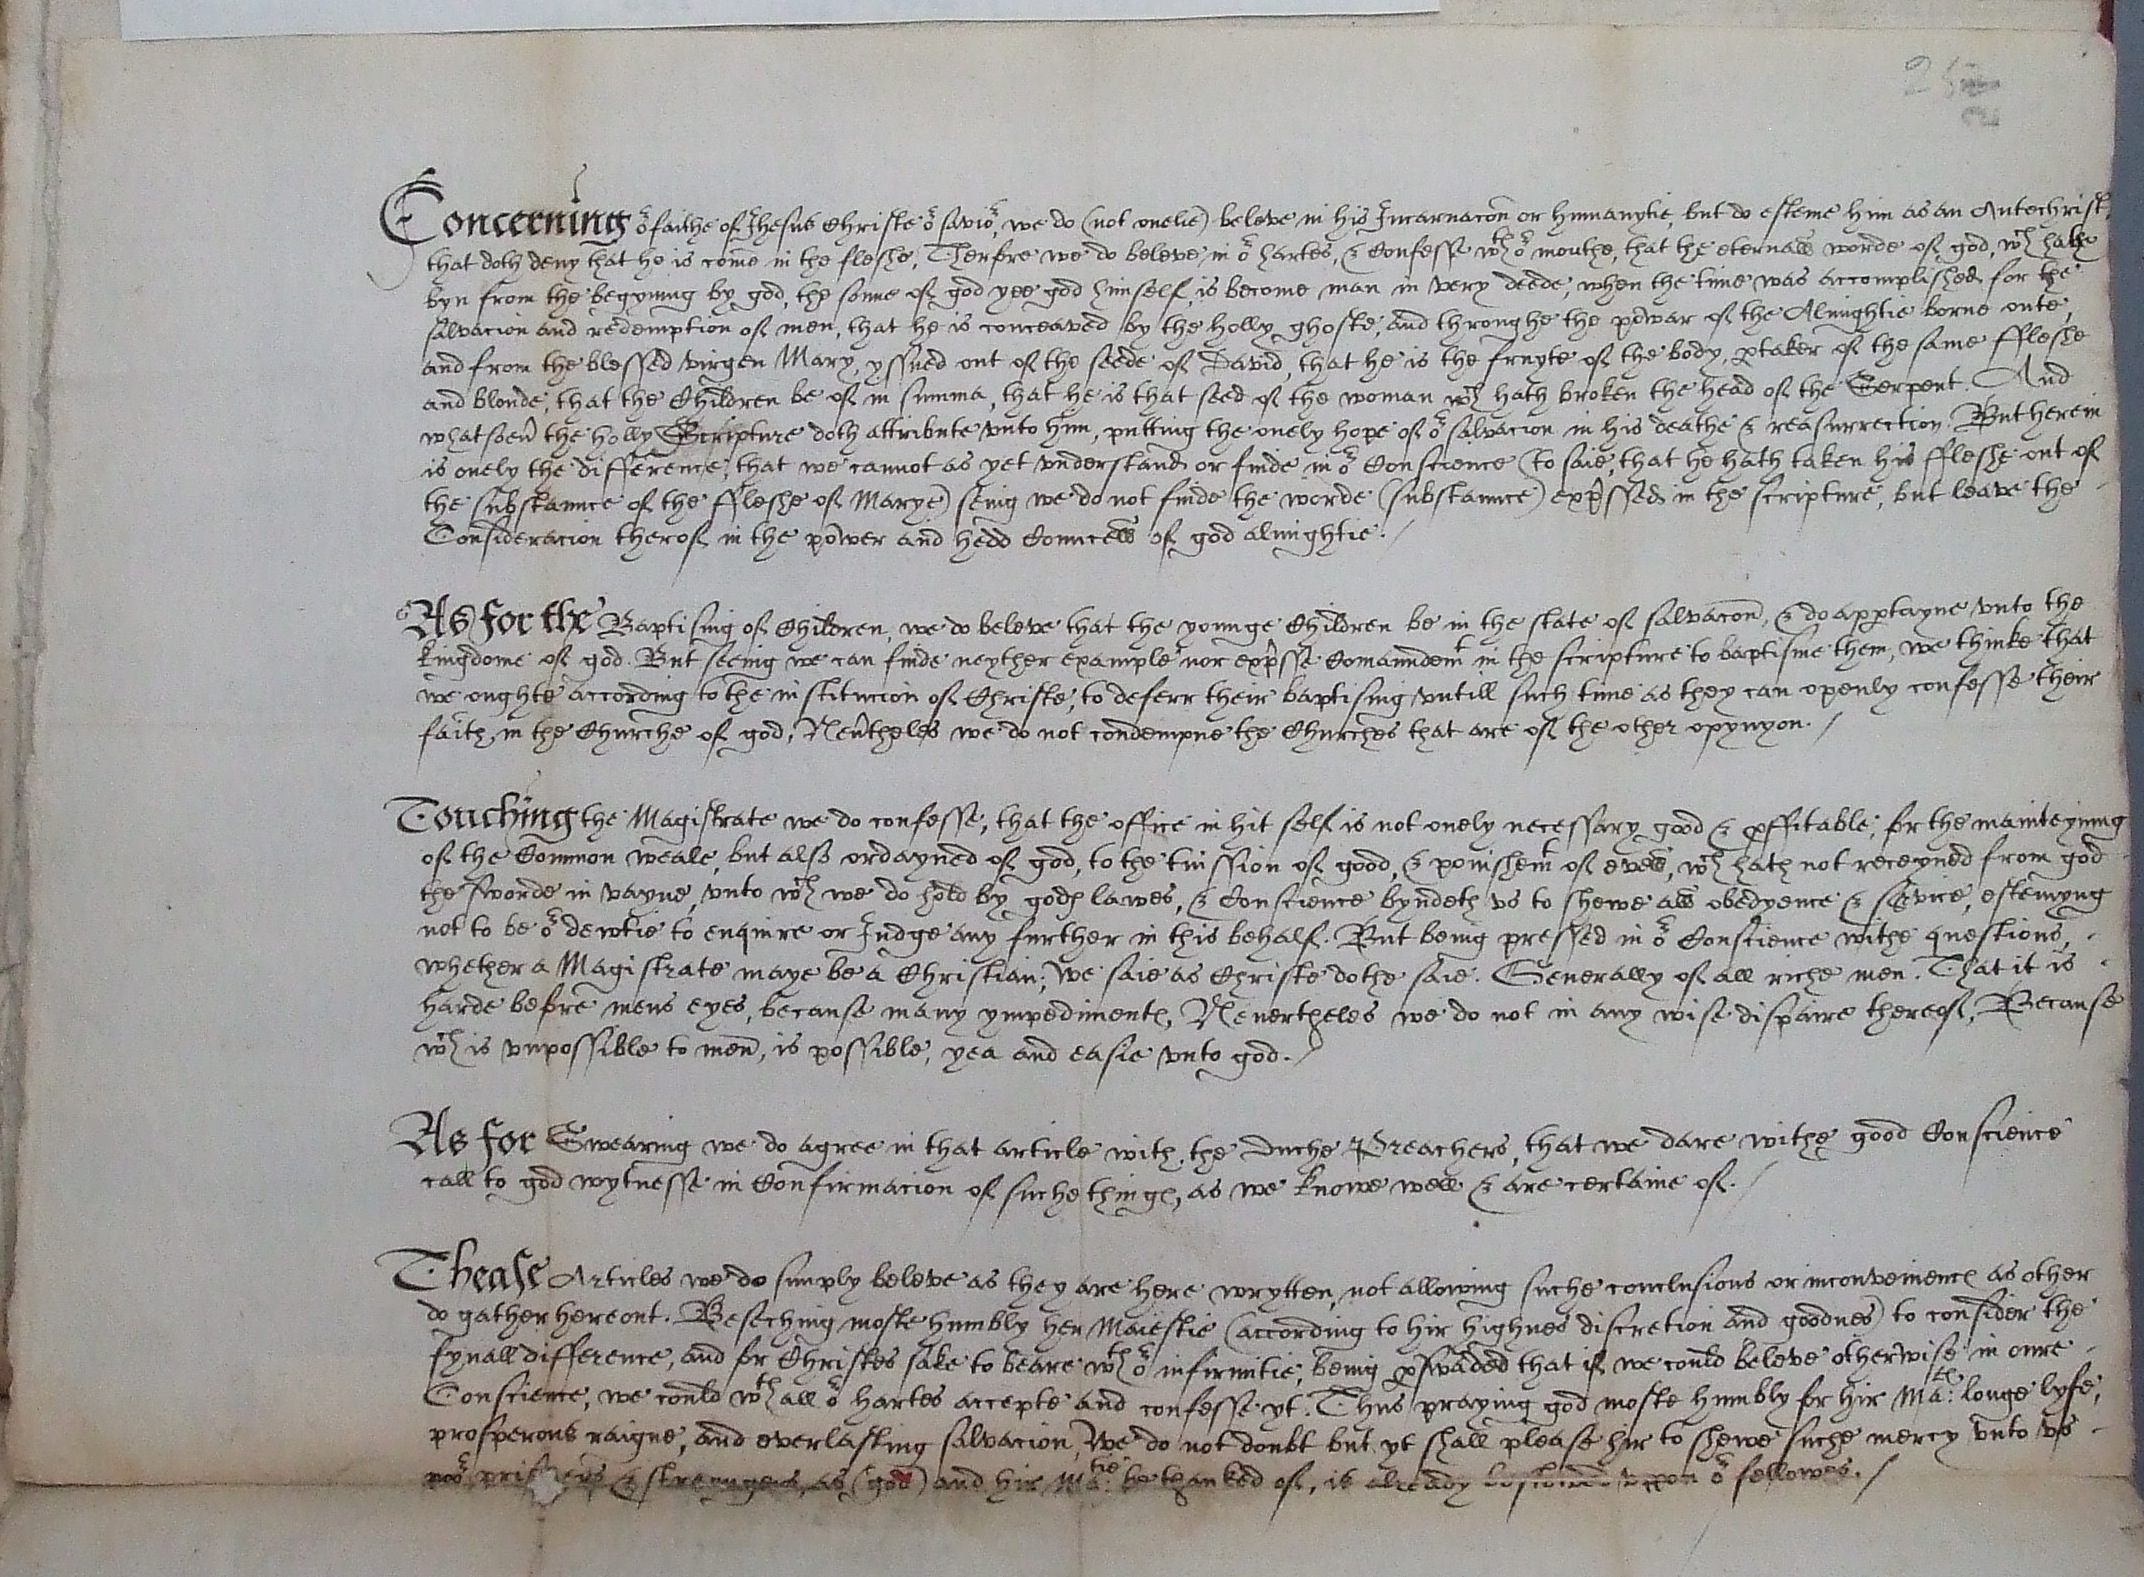 Concerning or faithe of Jhesus Christe or savior, we do (not onelie) beleve in his Incarnacon or humanytie, but do esteme him as an Antechrist,
that doth deny that he is come in the fleshe, Therfore we do beleve in or hartes, & Confesse wth or mouthe, that the eternall worde of god, wch hathe
byn from the begynnig by god, the sonne of god yee god himself, is become man in very deede, when the time was accomplished for the
salvacion and redemption of men, that he is conceaved by the holly ghoste, and throughe the powar of the Almightie borne oute,
and from the blessed virgen Mary, yssued out of the seede of David, that he is the fruyte of the body, ptaker of the same fflesche
and bloude, that the Children be of in summa, that he is that seed of the woman wch hath broken the head of the Serpent. And
whatsoeu the holly Scripture doth attribute vnto him, putting the onely hope of or salvacion in his deathe & reasurrection. But herein
is onely the difference, that we cannot as yet vnderstand or finde in or Conscience (to saie, that he hath taken his ffleshe out of
the substaunce of the ffleshe of Marye) seing we do not finde the worde (substaunce) expssed in the scripture, but leave the
Consideracion therof in the power and hedd Councell of god almightie.
As for the Baptising of Children, we do beleve that the younge Children be in the state of salvacon, & do apptayne vnto the
kingdome of god. But seeing we can finde neyther example nor expsse Comaundemt in the scripture to baptisme them, we thinke that
we oughte according to the institucion of Christe, to deferr their baptising vntill such time as they can openly confesse their
faith, in the Churche of god, Neutheles we do not condempne the Churches that are of the other opynyon.
Touching the Magistrate we do confesse, that the office in hit self is not onely necessary good & pffitable, for the mainteyning
of the Common weale, but also ordayned of god, to the tuission of good, & ponishemt of evell, wch hath not receyued from god
the sworde in vayne, vnto wch we do hold by godes lawes, & Conscience byndeth vs to shewe all obedyence & service, estemyng
not to be or dewtie to enquire or Judge any further in this behalf. But being pressed in or Conscience withe questions,
whether a Magistrate maye be a Christian; We saie as Christe dothe saie. Generally of all riche men. That it is
harde before mens eyes, because many ympedimentes, Neuertheles we do not in any wise dispaire thereof, Because
wch is vnpossible to men, is possible, yea and easie vnto god.
As for Swearing we do agree in that article with the Duche Preachers, that we dare withe good Conscience
call to god wytnesse in Confirmacion of suche thinges, as we knowe well & are certaine of.
Thease Articles we do simply beleve as they are here wrytten, not allowing suche conclusions or inconveniences as other
do gather hereout. Beseching moste humbly her Maiestie (according to hir highnes discretion and goodnes) to consider the
fynall difference, and for Christes sake to beare wth or infirmitie, being pswaded that if we could beleve otherwise in oure
Conscience, we could wth all or hartes accepte and confesse yt. Thus praying god moste humbly for hir Ma: longe lyfe,
prosperous raigne, and everlasting salvacion, We do not doubt but yt shall please hir to shewe suche mercy vnto vs
poor prisoners & straungers, as (god) and hir Matie be thanked of, is already bestowed vppon or fellowes.